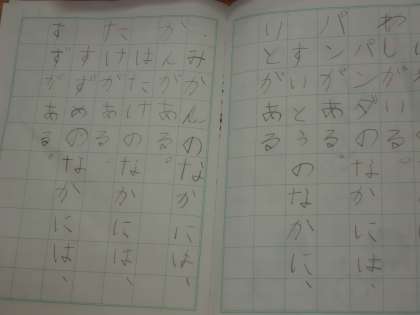 わしがいる
パンダのなかには、
パンがある。
すいとうのなかに、
いとがある
みかんのなかには、
かんがある。
はたけのなかには、
たけがある。
すずめのなかには、
すずがある。